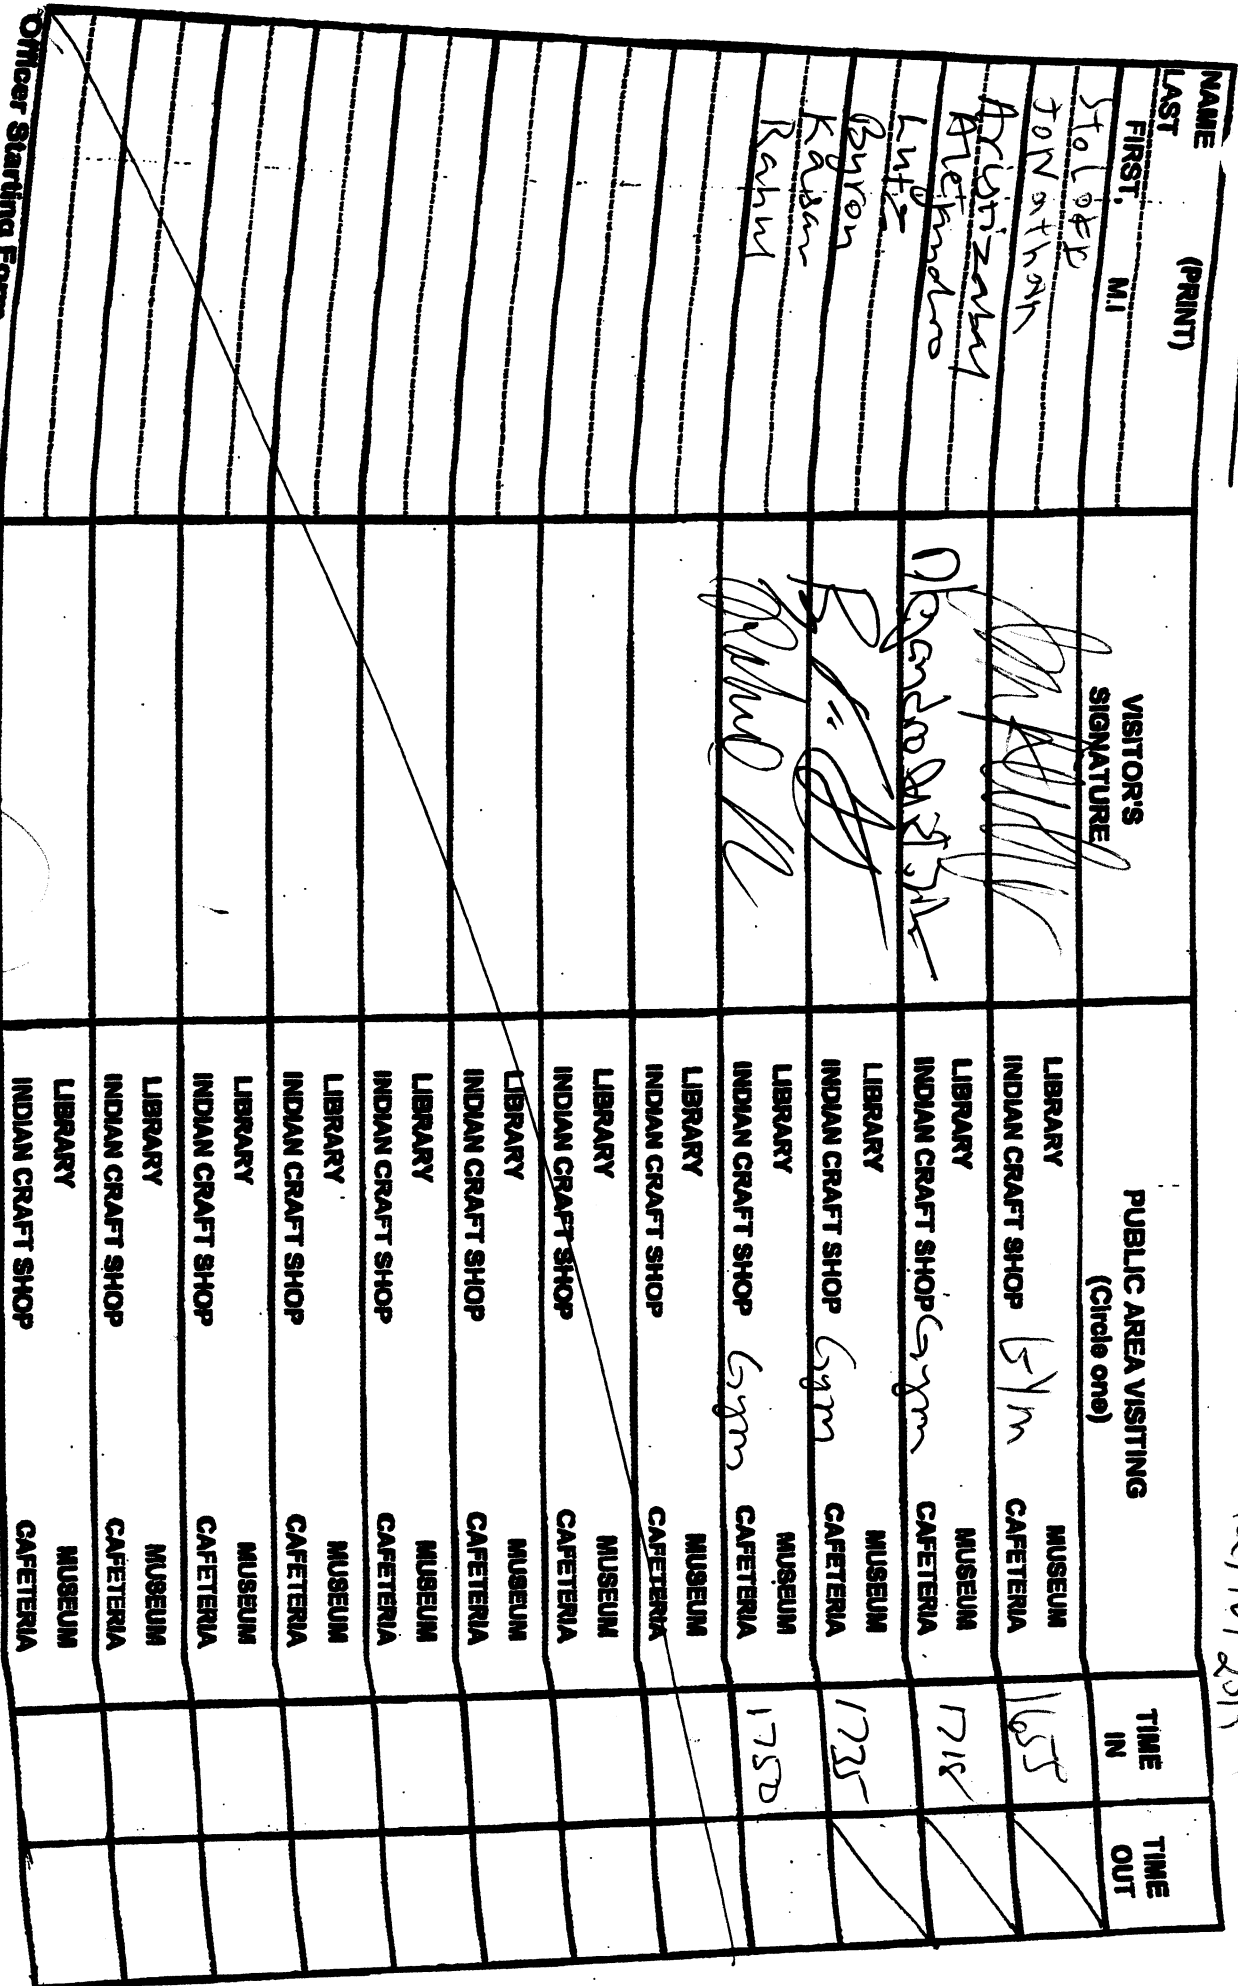 NAME (PRINT)
LAST
FIRST, M.I
VISITOR'S
SIGNATURE
PUBLIC AREA VISITING
(Circle one)
TIME
IN
TIME
OUT
JONathan
LIBRARY MUSEUM
INDIAN CRAFT SHOP GYm CAFETERIA
1655
Aristizabal
Alejandro
LIBRARY MUSEUM
INDIAN CRAFT SHOP Gym CAFETERIA
1718
Lutz
Byron
LIBRARY MUSEUM
INDIAN CRAFT SHOP Gym CAFETERIA
1735
Kaisan
Rahul
LIBRARY MUSEUM
INDIAN CRAFT SHOP Gym CAFETERIA
1750
LIBRARY MUSEUM
INDIAN CRAFT SHOP CAFETERIA
LIBRARY MUSEUM
INDIAN CRAFT SHOP CAFETERIA
LIBRARY MUSEUM
INDIAN CRAFT SHOP CAFETERIA
LIBRARY MUSEUM
INDIAN CRAFT SHOP CAFETERIA
LIBRARY MUSEUM
INDIAN CRAFT SHOP CAFETERIA
LIBRARY MUSEUM
INDIAN CRAFT SHOP CAFETERIA
LIBRARY MUSEUM
INDIAN CRAFT SHOP CAFETERIA
LIBRARY MUSEUM
INDIAN CRAFT SHOP CAFETERIA
Officer Starting Form